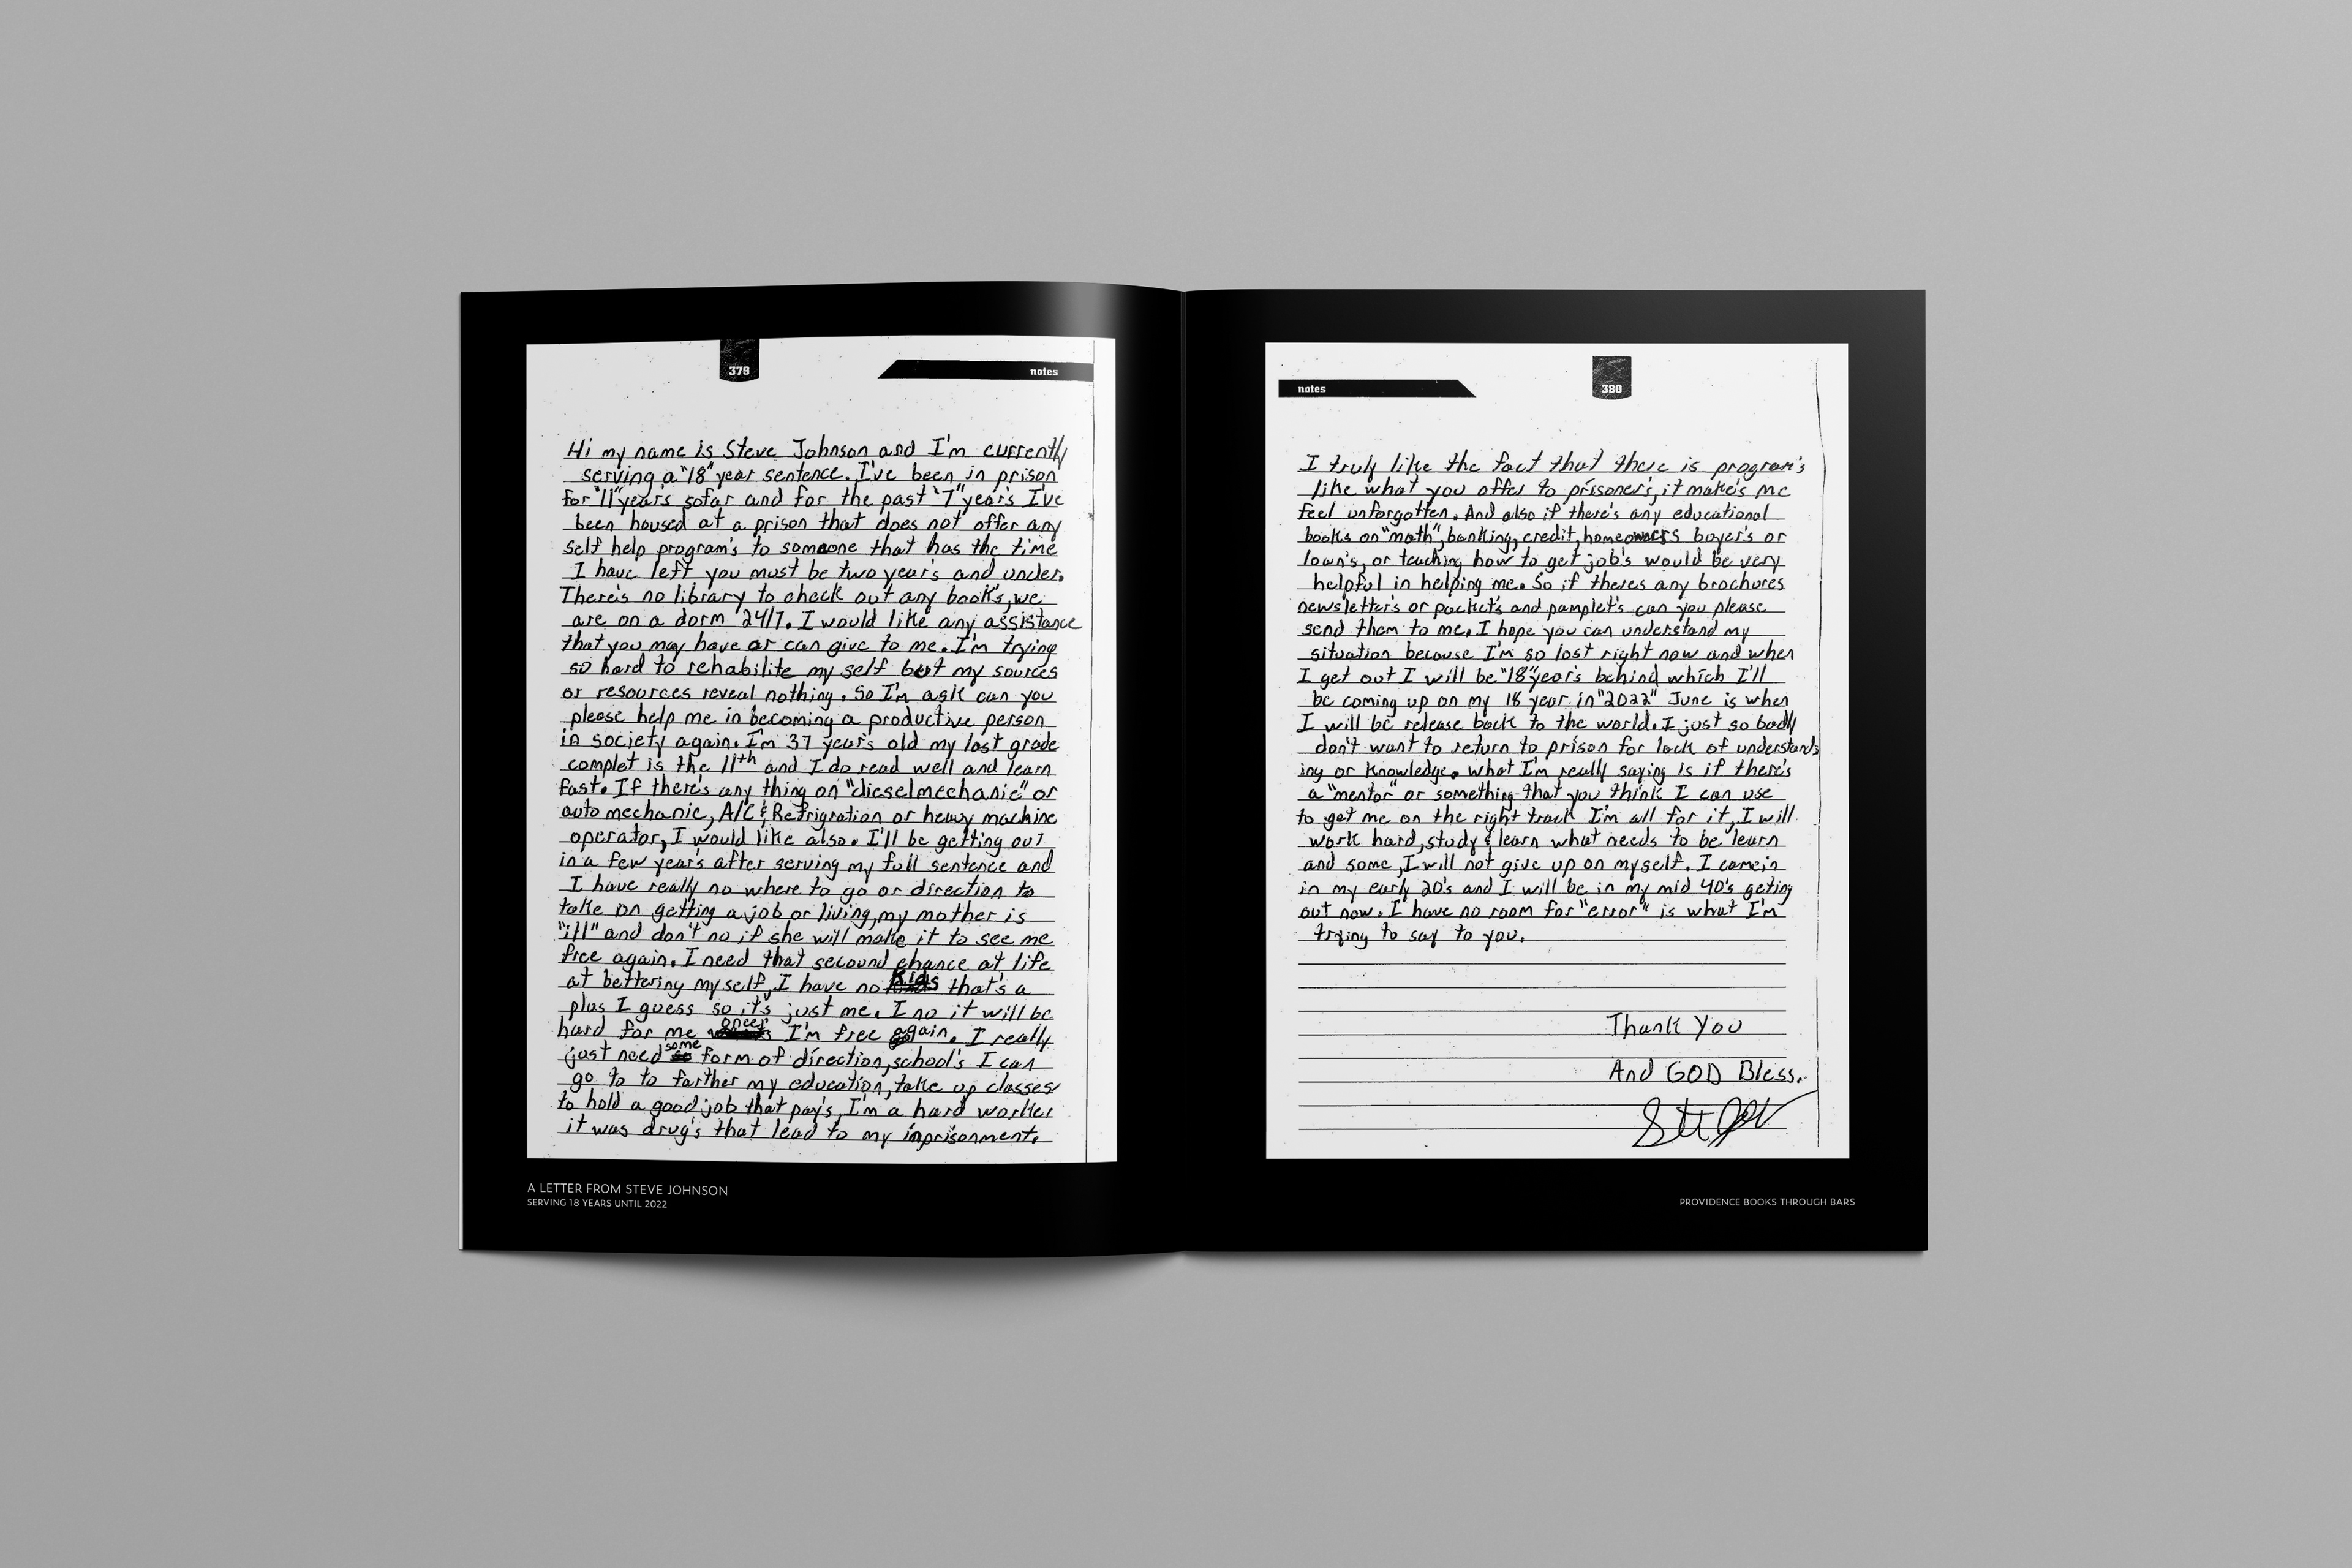 379
notes
Hi my name is Steve Johnson and I'm currently
serving a "18" year sentence. I've been in prison
for "11" year's sofar and for the past "7" year's I've
been housed at a prison that does not offer any
self help program's to someone that has the time
I have left you must be two year's and under.
There's no library to check out any book's, we
are on a dorm 24/7. I would like any assistance
that you may have or can give to me. I'm trying
so hard to rehabilite my self but my sources
or resources reveal nothing. So I'm ask can you
please help me in becoming a productive person
in society again. I'm 37 year's old my last grade
complet is the 11th and I do read well and learn
fast. If there's any thing on "dieselmechanic" or
auto mechanic, A/C & Refrigration or heavy machine
operator, I would like also. I'll be getting out
in a few year's after serving my full sentence and
I have really no where to go or direction to
take on getting a job or living, my mother is
"ill" and don't no if she will make it to see me
free again. I need that secound chance at life
at bettering my self, I have no Kids that's a
plus I guess so it's just me. I no it will be
hard for me once I'm free again. I really
just need some form of direction, school's I can
go to to farther my education, take up classes
to hold a good job that pay's, I'm a hard worker
it was drug's that lead to my inprisonment.
A LETTER FROM STEVE JOHNSON
SERVING 18 YEARS UNTIL 2022
notes
380
I truly like the fact that there is program's
like what you offer to prisoner's, it make's me
feel unforgotten. And also if there's any educational
books on "math", banking, credit, homeowners buyer's or
loan's, or teaching how to get job's would be very
helpful in helping me. So if theres any brochures
newsletter's or packet's and pamplet's can you please
send them to me. I hope you can understand my
situation because I'm so lost right now and when
I get out I will be "18" year's behind which I'll
be coming up on my 18 year in "2022" June is when
I will be release back to the world. I just so badly
don't want to return to prison for lack of understand-
ing or Knowledge. what I'm really saying is if there's
a "mentor" or something that you think I can use
to get me on the right track I'm all for it, I will
work hard, study & learn what needs to be learn
and some, I will not give up on myself. I came in
in my early 20's and I will be in my mid 40's geting
out now. I have no room for "error" is what I'm
trying to say to you.
Thank You
And GOD Bless.
PROVIDENCE BOOKS THROUGH BARS